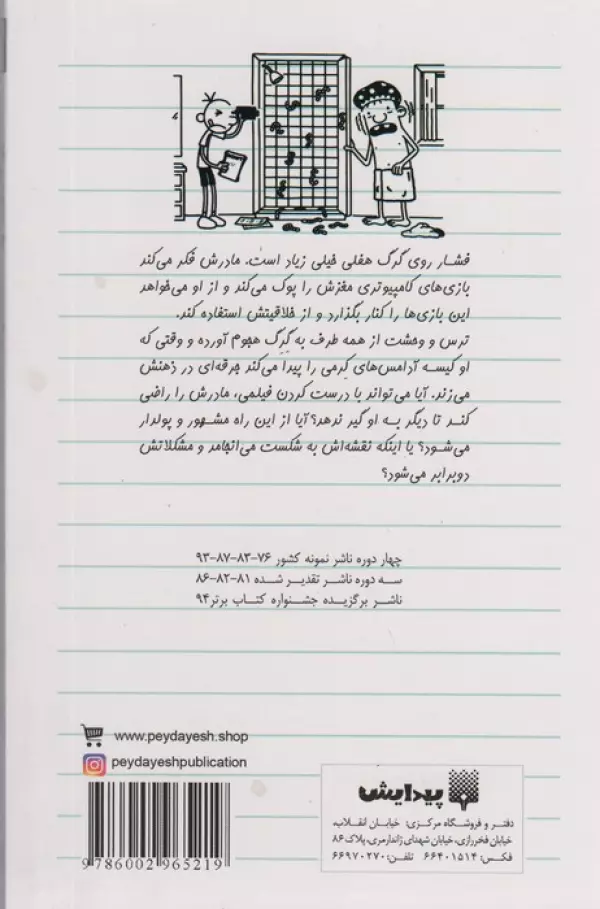 فشار روی گرگ هفلی خیلی زیاد است. مادرش فکر می‌کند
بازی‌های کامپیوتری مغزش را پوک می‌کند و از او می‌خواهد
این بازی‌ها را کنار بگذارد و از خلاقیتش استفاده کند.
ترس و وحشت از همه طرف به گرگ هجوم آورده و وقتی که
او کیسه آدامس‌های کرمی را پیدا می‌کند جرقه‌ای در ذهنش
می‌زند. آیا می‌تواند با درست کردن فیلمی، مادرش را راضی
کند تا دیگر به او گیر ندهد؟ آیا از این راه مشهور و پولدار
می‌شود؟ یا اینکه نقشه‌اش به شکست می‌انجامد و مشکلاتش
دوبرابر می‌شود؟
چهار دوره ناشر نمونه کشور ۷۶-۸۳-۸۷-۹۳
سه دوره ناشر تقدیر شده ۸۱-۸۲-۸۶
ناشر برگزیده جشنواره کتاب برتر۹۴
www.peydayesh.shop
peydayeshpublication
9786002965219
پیدایش
دفتر و فروشگاه مرکزی: خیابان انقلاب،
خیابان فخررازی، خیابان شهدای ژاندارمری، پلاک ۸۶
فکس: ۶۶۴۰۱۵۱۴ تلفن: ۶۶۹۷۰۲۷۰